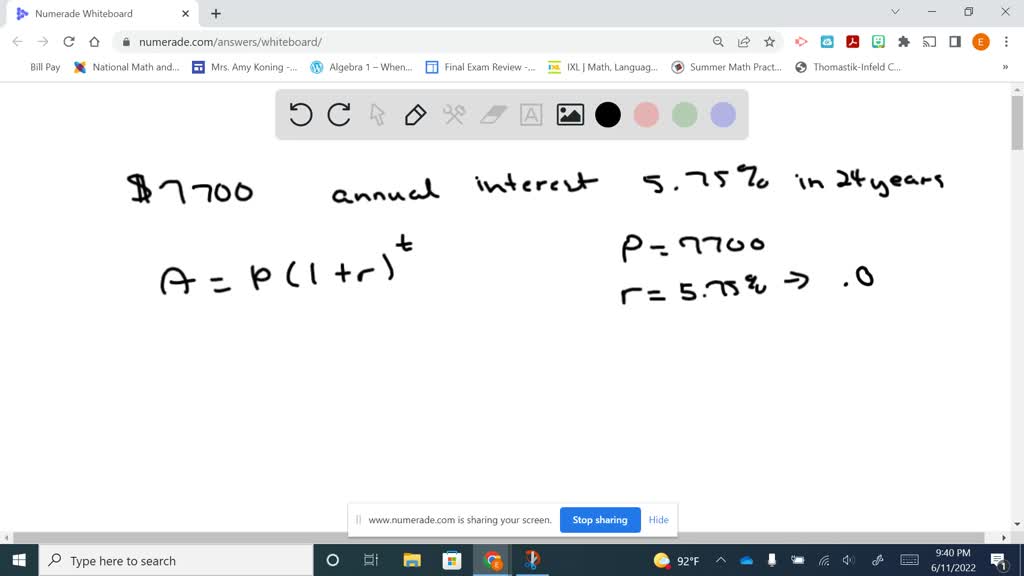 Numerade Whiteboard
numerade.com/answers/whiteboard/
E
Bill Pay National Math and... Mrs. Amy Koning -... Algebra 1 – When... Final Exam Review -... IXL | Math, Languag... Summer Math Pract... Thomastik-Infeld C... »
A
$7700 annual interest 5.75% in 24 years
P = 7700
A = P(1+r)^t
r = 5.75% → .0
www.numerade.com is sharing your screen. Stop sharing Hide
Type here to search
92°F
9:40 PM
6/11/2022
1